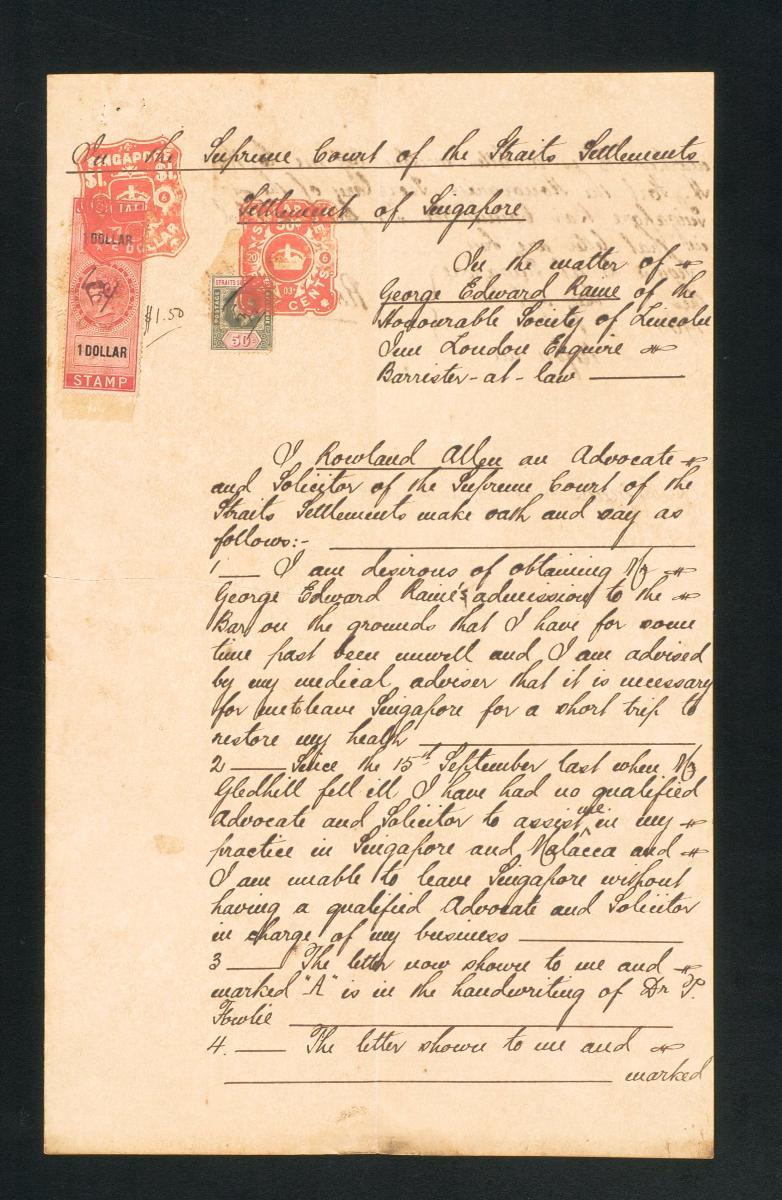 In the Supreme Court of the Straits Settlements
Settlement of Singapore
SINGAPORE
$1. $1.
1 DOLLAR
1 DOLLAR
STAMP
$1.50
50c
20 6
03
CENTS
STRAITS
POSTAGE
50c
In the matter of
George Edward Raine of the
Honourable Society of Lincoln
Inn London Esquire
Barrister-at-law
I Rowland Allen an Advocate
and Solicitor of the Supreme Court of the
Straits Settlements make oath and say as
follows:-
1 I am desirous of obtaining Mr
George Edward Raine's admission to the
Bar on the grounds that I have for some
time past been unwell and I am advised
by my medical adviser that it is necessary
for me to leave Singapore for a short trip to
restore my health
2 Since the 15th September last when Mr
Gledhill fell ill I have had no qualified
Advocate and Solicitor to assist me in my
practice in Singapore and Malacca and
I am unable to leave Singapore without
having a qualified Advocate and Solicitor
in charge of my business
3 The letter now shown to me and
marked "A" is in the handwriting of Dr P.
Fowlie
4. The letter shown to me and
marked